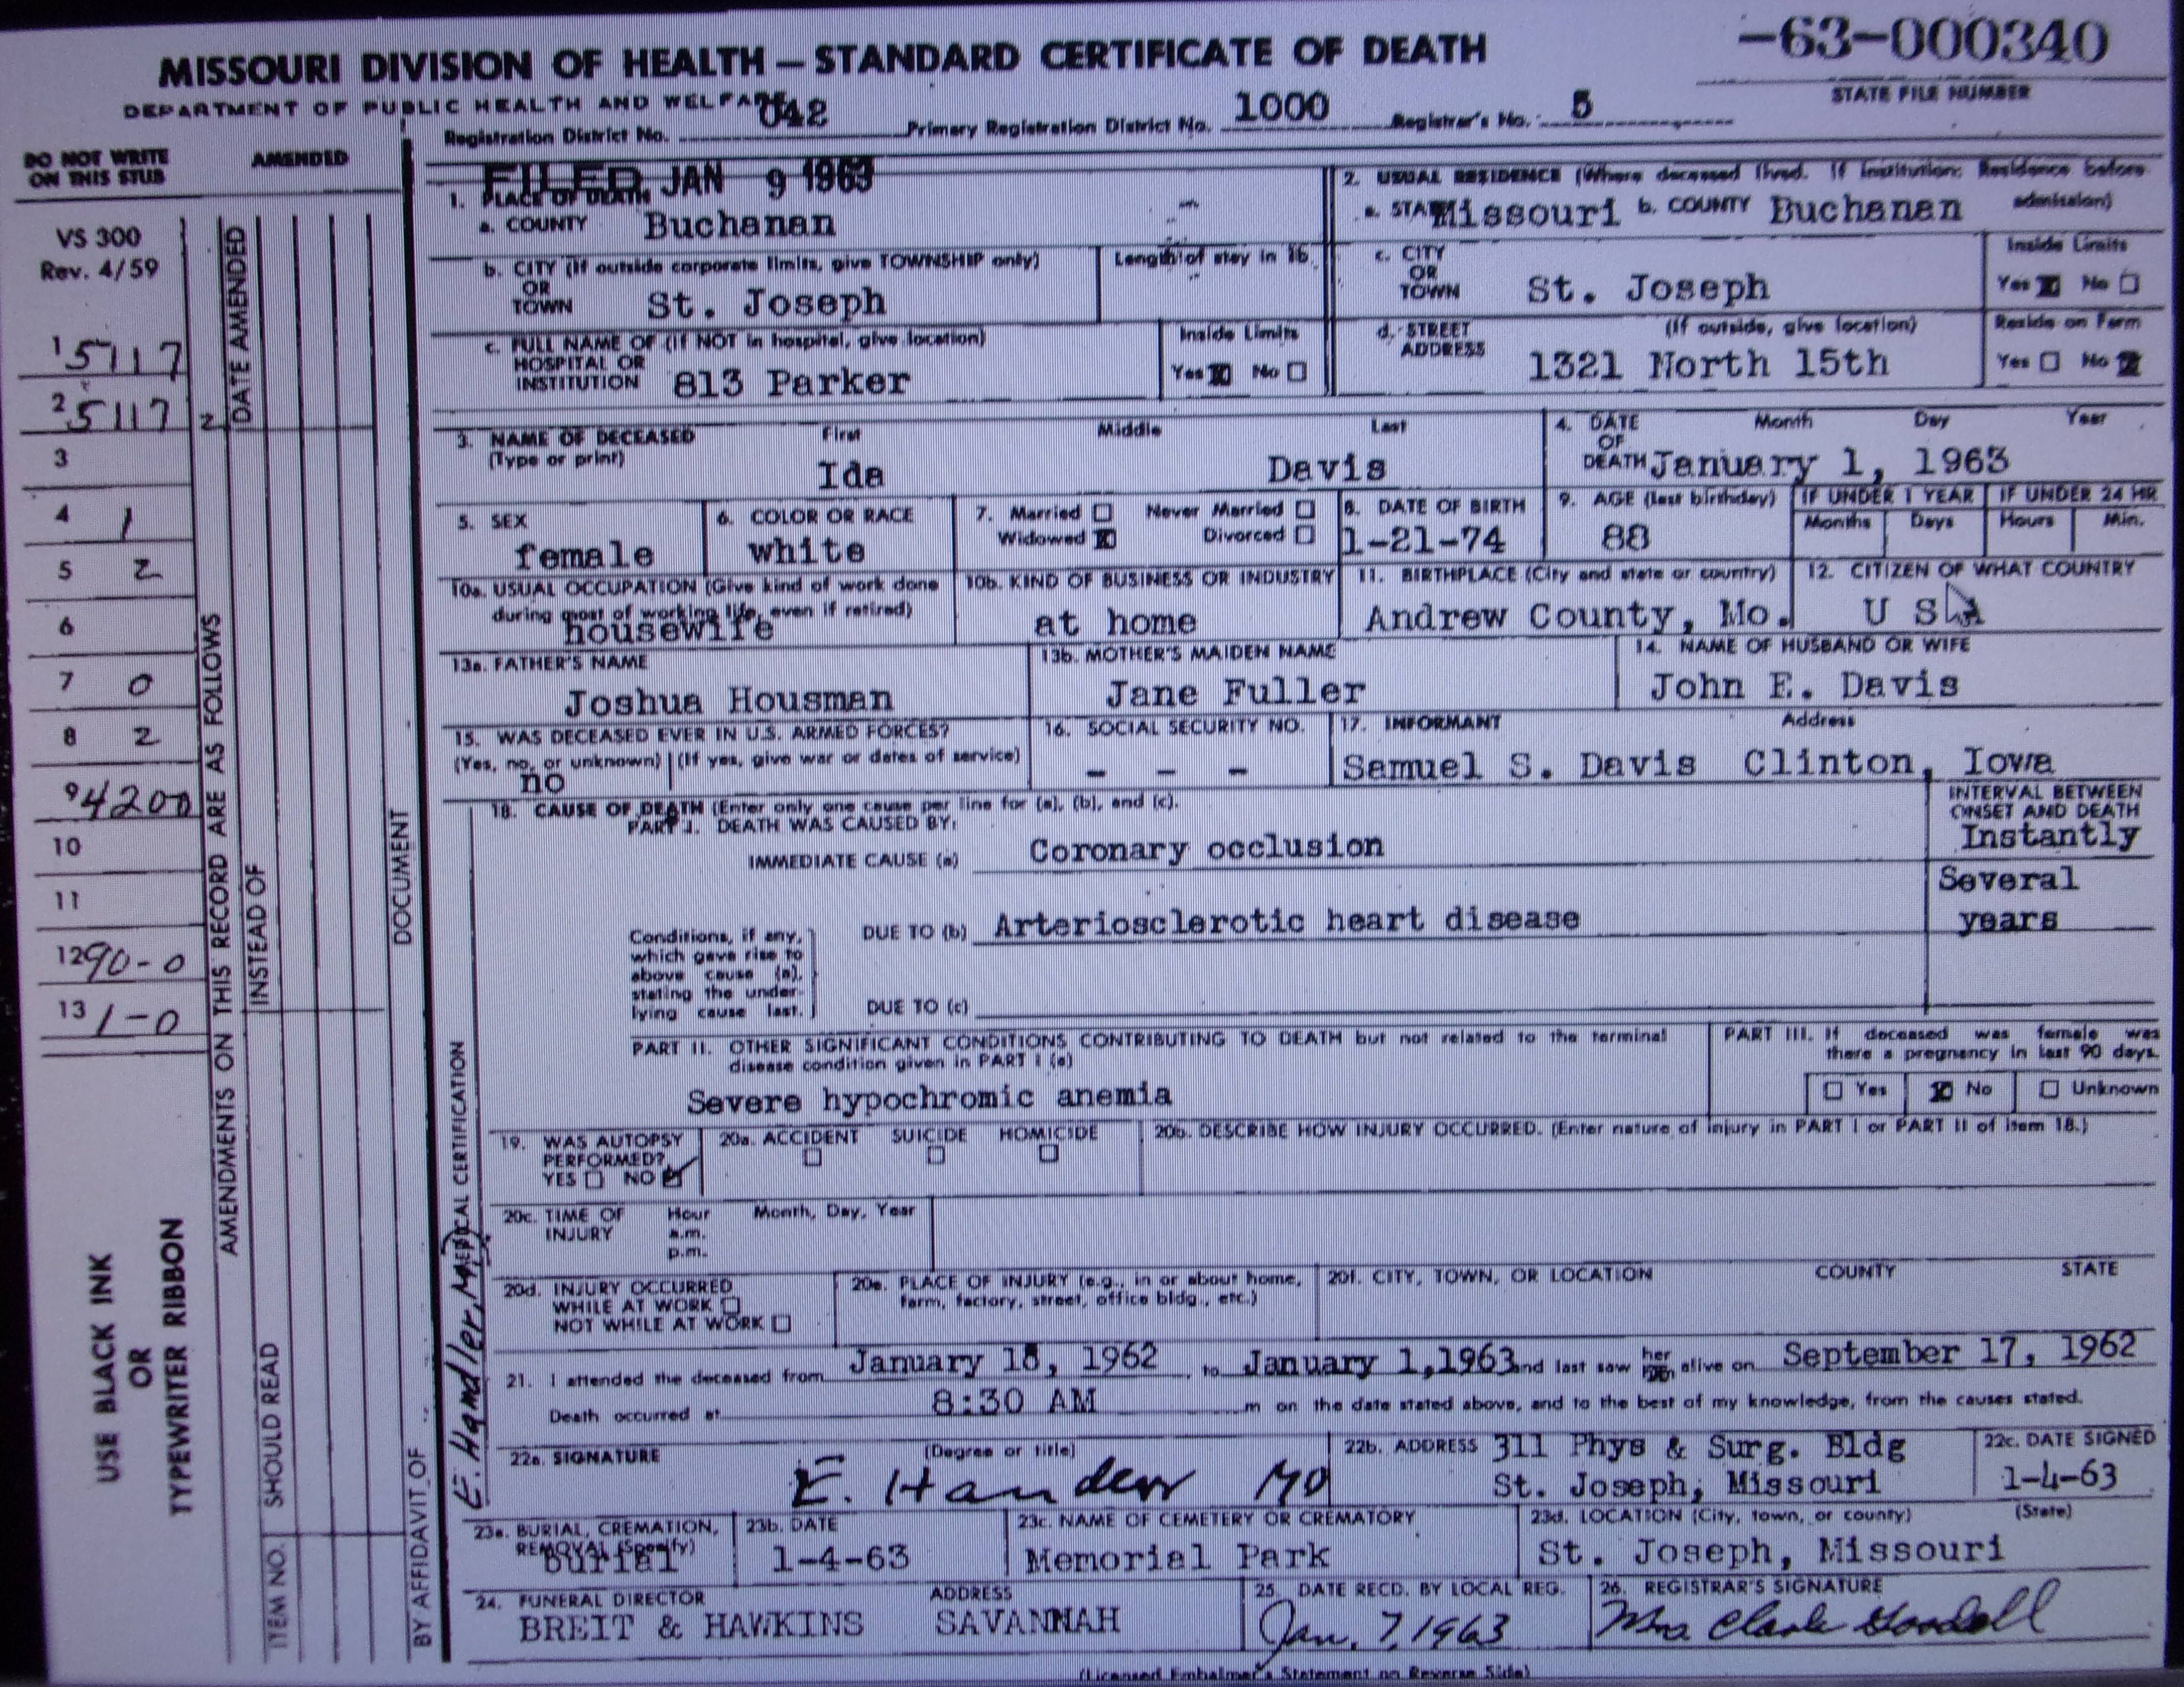 -63-000340
MISSOURI DIVISION OF HEALTH — STANDARD CERTIFICATE OF DEATH
STATE FILE NUMBER
DEPARTMENT OF PUBLIC HEALTH AND WELFARE
Registration District No. 042 Primary Registration District No. 1000 Registrar's No. 5
DO NOT WRITE
ON THIS STUB
AMENDED
VS 300
Rev. 4/59
1 5117
2 5117 2
3
4 1
5 2
6
7 0
8 2
9 4200
10
11
12 90-0
13 1-0
USE BLACK INK
OR
TYPEWRITER RIBBON
AMENDMENTS ON THIS RECORD ARE AS FOLLOWS
DATE AMENDED
INSTEAD OF
SHOULD READ
ITEM NO.
DOCUMENT
BY AFFIDAVIT OF
FILED JAN 9 1963
1. PLACE OF DEATH
a. COUNTY Buchanan
2. USUAL RESIDENCE (Where deceased lived. If Institution: Residence before admission)
a. STATE Missouri b. COUNTY Buchanan
b. CITY (If outside corporate limits, give TOWNSHIP only)
OR
TOWN St. Joseph
Length of stay in 1b
c. CITY
OR
TOWN St. Joseph
Inside Limits
Yes No
c. FULL NAME OF (If NOT in hospital, give location)
HOSPITAL OR
INSTITUTION 813 Parker
Inside Limits
Yes No
d. STREET
ADDRESS
(If outside, give location)
1321 North 15th
Reside on Farm
Yes No
3. NAME OF DECEASED
(Type or print)
First Middle Last
Ida Davis
4. DATE
OF
DEATH
Month Day Year
January 1, 1963
5. SEX
female
6. COLOR OR RACE
white
7. Married Never Married
Widowed Divorced
8. DATE OF BIRTH
1-21-74
9. AGE (last birthday)
88
IF UNDER 1 YEAR
Months Days
IF UNDER 24 HR
Hours Min.
10a. USUAL OCCUPATION (Give kind of work done
during most of working life, even if retired)
housewife
10b. KIND OF BUSINESS OR INDUSTRY
at home
11. BIRTHPLACE (City and state or country)
Andrew County, Mo.
12. CITIZEN OF WHAT COUNTRY
U S A
13a. FATHER'S NAME
Joshua Housman
13b. MOTHER'S MAIDEN NAME
Jane Fuller
14. NAME OF HUSBAND OR WIFE
John E. Davis
15. WAS DECEASED EVER IN U.S. ARMED FORCES?
(Yes, no, or unknown) (If yes, give war or dates of service)
no
16. SOCIAL SECURITY NO.
- - -
17. INFORMANT Address
Samuel S. Davis Clinton, Iowa
18. CAUSE OF DEATH (Enter only one cause per line for (a), (b), and (c).
PART I. DEATH WAS CAUSED BY:
INTERVAL BETWEEN
ONSET AND DEATH
IMMEDIATE CAUSE (a) Coronary occlusion
Instantly
Several
years
Conditions, if any,
which gave rise to
above cause (a),
stating the under-
lying cause last.
DUE TO (b) Arteriosclerotic heart disease
DUE TO (c)
PART II. OTHER SIGNIFICANT CONDITIONS CONTRIBUTING TO DEATH but not related to the terminal
disease condition given in PART I (a)
Severe hypochromic anemia
PART III. If deceased was female was
there a pregnancy in last 90 days.
Yes No Unknown
MEDICAL CERTIFICATION
E. Handler, M.D.
19. WAS AUTOPSY
PERFORMED?
YES NO
20a. ACCIDENT SUICIDE HOMICIDE
20b. DESCRIBE HOW INJURY OCCURRED. (Enter nature of injury in PART I or PART II of item 18.)
20c. TIME OF
INJURY
Hour Month, Day, Year
a.m.
p.m.
20d. INJURY OCCURRED
WHILE AT WORK
NOT WHILE AT WORK
20e. PLACE OF INJURY (e.g., in or about home,
farm, factory, street, office bldg., etc.)
20f. CITY, TOWN, OR LOCATION COUNTY STATE
21. I attended the deceased from January 18, 1962, to January 1,1963 and last saw her him alive on September 17, 1962
Death occurred at 8:30 AM m on the date stated above, and to the best of my knowledge, from the causes stated.
22a. SIGNATURE (Degree or title)
E. Handler MD
22b. ADDRESS 311 Phys & Surg. Bldg
St. Joseph, Missouri
22c. DATE SIGNED
1-4-63
23a. BURIAL, CREMATION,
REMOVAL (Specify)
burial
23b. DATE
1-4-63
23c. NAME OF CEMETERY OR CREMATORY
Memorial Park
23d. LOCATION (City, town, or county) (State)
St. Joseph, Missouri
24. FUNERAL DIRECTOR ADDRESS
BREIT & HAWKINS SAVANNAH
25. DATE RECD. BY LOCAL REG.
Jan. 7, 1963
26. REGISTRAR'S SIGNATURE
Mrs Clark Goodell
(Licensed Embalmer's Statement on Reverse Side)